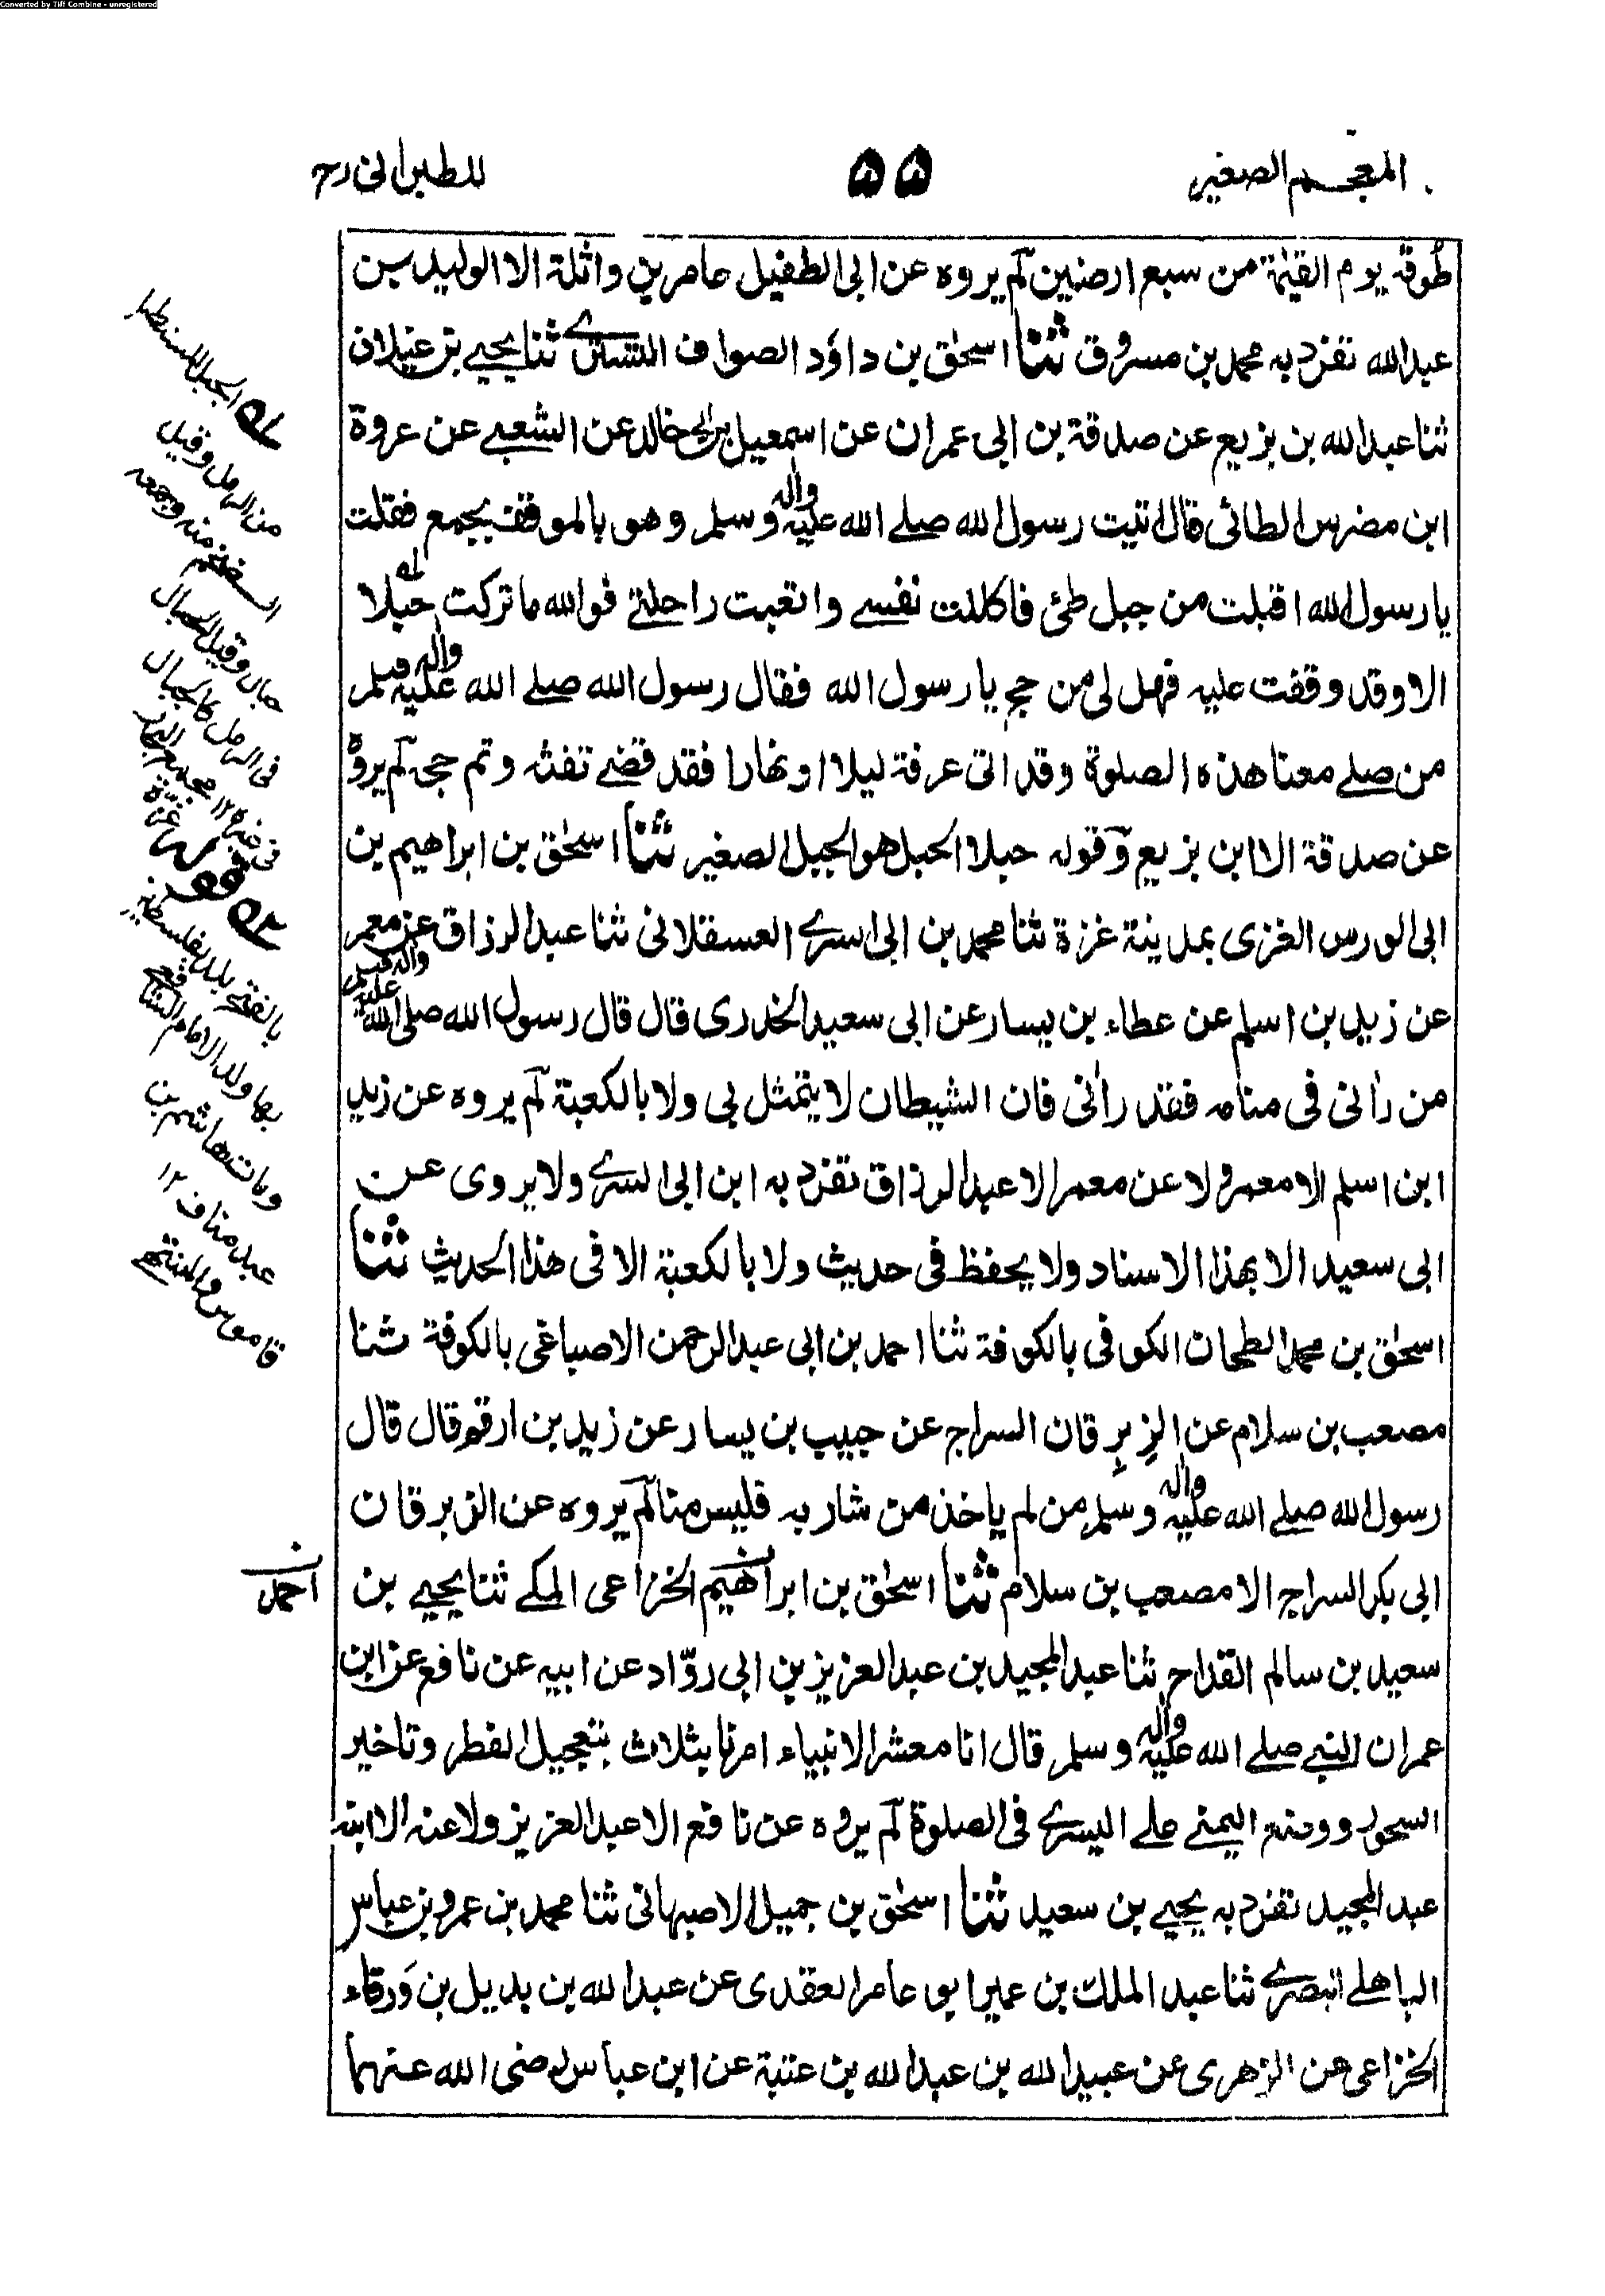 Converted by Tiff Combine - unregistered
المعجم الصغير
۵۵
للطبرانی رح
طوقه يوم القيٰمة من سبع ارضين لم يروه عن ابی الطفيل عامر بن واثلة الا الوليد بن
عبد الله تفرد به محمد بن مسروق ثنا اسحٰق بن داؤد الصواف التستری ثنا يحيی بن غيلان
ثنا عبد الله بن بزيع عن صدقة بن ابی عمران عن اسمعيل بن ابی خالد عن الشعبی عن عروة
ابن مضرس الطائی قال اتيت رسول الله صلی الله عليه واله وسلم وهو بالموقف بجمع فقلت
يا رسول الله اقبلت من جبل طئ فاكللت نفسی واتعبت راحلتی فوالله ما تركت حبلا
الا وقد وقفت عليه فهل لی من حج يا رسول الله فقال رسول الله صلی الله عليه واله وسلم
من صلی معنا هذه الصلوة وقد اتی عرفة ليلا او نهارا فقد قضی تفثه وتم حجه لم يروه
عن صدقة الا ابن بزيع وقوله حبلا الحبل هو الجبل الصغير ثنا اسحٰق بن ابراهيم بن
ابی الورس الغزی بمدينة غزة ثنا محمد بن ابی السری العسقلانی ثنا عبد الرزاق عن معمر
عن زيد بن اسلم عن عطاء بن يسار عن ابی سعيد الخدری قال قال رسول الله صلی الله عليه واله وسلم
من رأنی فی منامه فقد رأنی فان الشيطان لا يتمثل بی ولا بالكعبة لم يروه عن زيد
ابن اسلم الا معمر ولا عن معمر الا عبد الرزاق تفرد به ابن ابی السری ولا يروی عن
ابی سعيد الا بهذا الاسناد ولا يحفظ فی حديث ولا بالكعبة الا فی هذا الحديث ثنا
اسحٰق بن محمد الطحان الكوفی بالكوفة ثنا احمد بن ابی عبد الرحمن الاصباغی بالكوفة ثنا
مصعب بن سلام عن الزِبرِقان السراج عن حبيب بن يسار عن زيد بن ارقم قال قال
رسول الله صلی الله عليه واله وسلم من لم ياخذ من شاربه فليس منا لم يروه عن الزبرقان
ابی بكر السراج الا مصعب بن سلام ثنا اسحٰق بن ابراهيم الخزاعی المكی ثنا يحيی بن
احمد
سعيد بن سالم القداح ثنا عبد المجيد بن عبد العزيز بن ابی روّاد عن ابيه عن نافع عن ابن
عمر ان النبی صلی الله عليه واله وسلم قال انا معشر الانبياء امرنا بثلاث بتعجيل الفطر وتاخير
السحور ووضع اليمنی علی اليسری فی الصلوة لم يروه عن نافع الا عبد العزيز ولا عنه الا ابنه
عبد المجيد تفرد به يحيی بن سعيد ثنا اسحٰق بن جميل الاصبهانی ثنا محمد بن عمرو بن عباس
الباهلی البصری ثنا عبد الملك بن عمير ابو عامر العقدی عن عبد الله بن بديل بن وَرقاء
الخزاعی عن الزهری عن عبيد الله بن عبد الله بن عتبة عن ابن عباس رضی الله عنهما
الحبل المستطيل
من الرمل وقيل
الضخم منه وجمعه
حبال وقيل الحبال
فی الرمل كالجبال
فی غيره ١٢ مجمع البحار
غزّة
بالفتح بلد بفلسطين
بها ولد الامام الشافعی
ومات هاشم بن
عبد مناف ١٢
قاموس والمنتهی